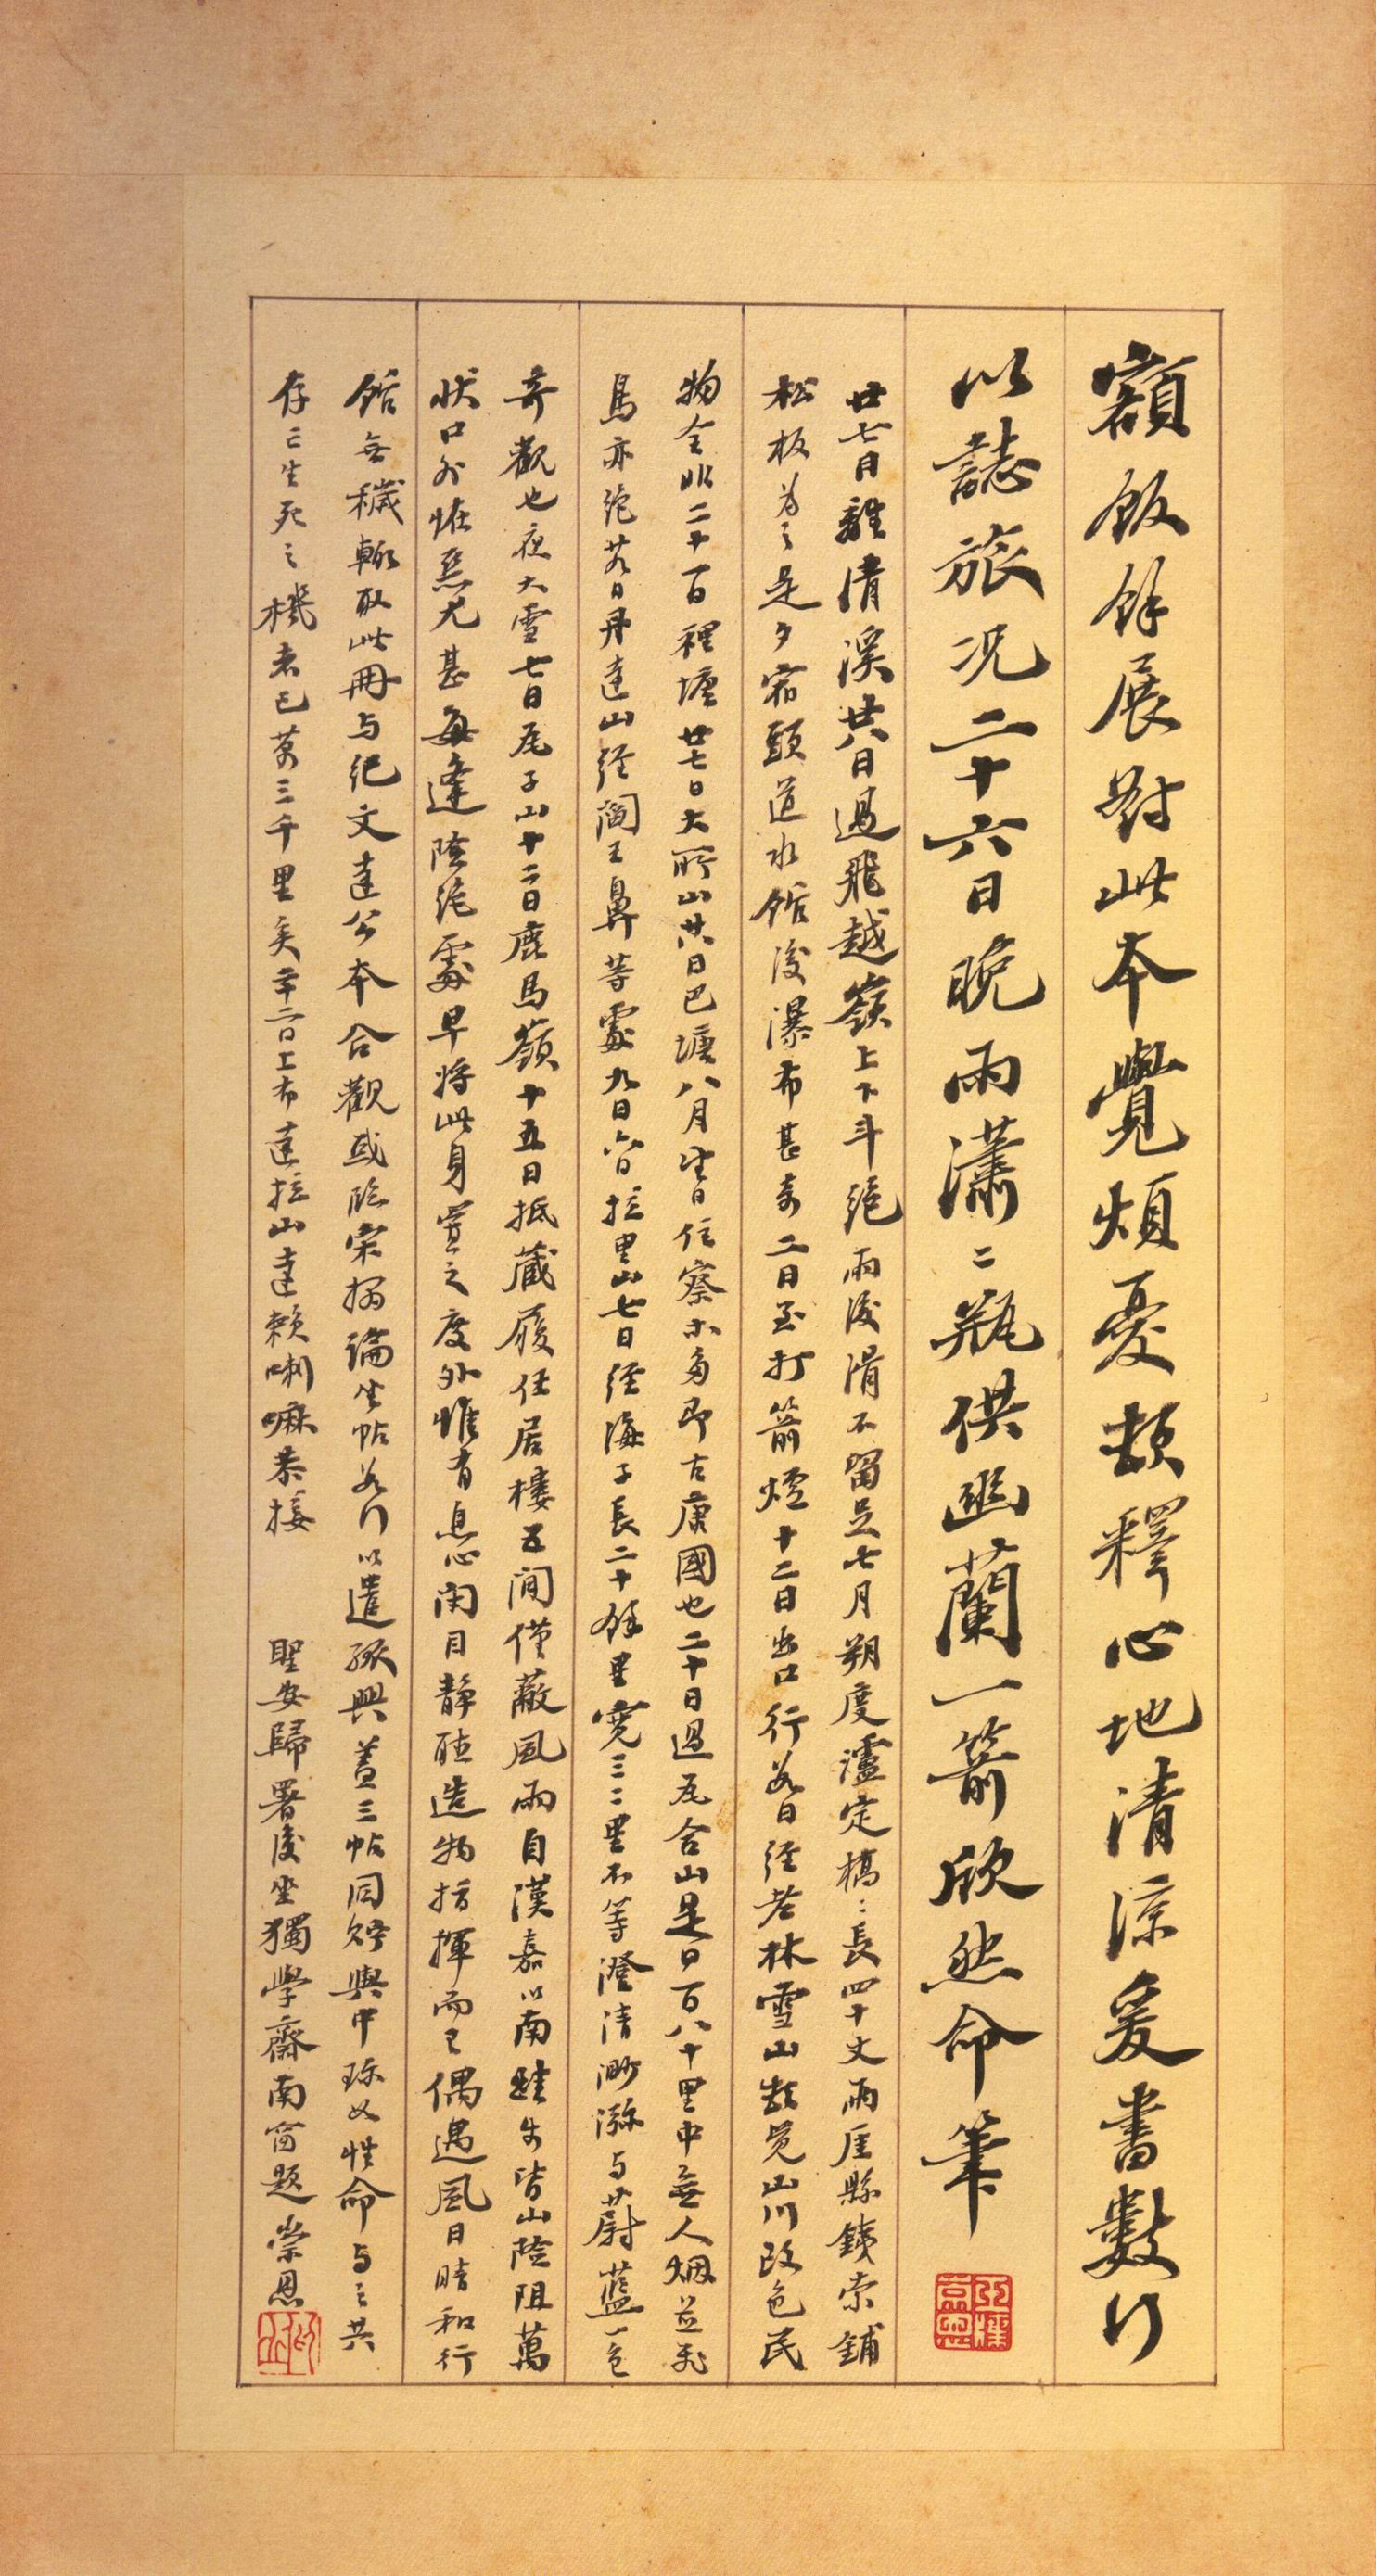 額飯餘展對此本覺煩憂頓釋心地清涼爰書數行
以誌旅況二十六日晚雨瀟二瓶供幽蘭一箭欣然命筆
廿七日離清溪廿八日過飛越嶺上下斗絕雨後滑不留足七月朔度瀘定橋二長四十丈兩厓縣鐵索鋪
松板為之是夕宿頭道水館後瀑布甚奇二日至打箭爐十二日出口行次日經老林雪山頓覺山川改色民
物全非二十一日裡塘廿七日大所山廿八日巴塘八月望日住察木多即古康國也二十日過瓦合山是日百八十里中無人烟並飛
鳥亦絕廿九日丹達山經閻王鼻等處九月六日拉里山七日經海子長二十餘里寬三二里不等澄清渺瀰與蔚藍一色
奇觀也夜大雪七日瓦子山十二日鹿馬嶺十五日抵藏履任居樓五間僅蔽風雨自漢嘉以南蛙步皆山險阻萬
狀口外怪惡尤甚每逢險絕處早將此身置之度外惟有息心閉目靜聽造物指揮而已偶遇風日晴和行
館無穢輒取此冊与紀文達公本合觀或臨宋搨論坐帖數行以遣孤興蓋三帖同貯輿中珍如性命與之共
存亡生死之機者已萬三千里矣辛二日上布達拉山達賴喇嘛恭接　聖安歸署後坐獨學齋南窗題　崇恩